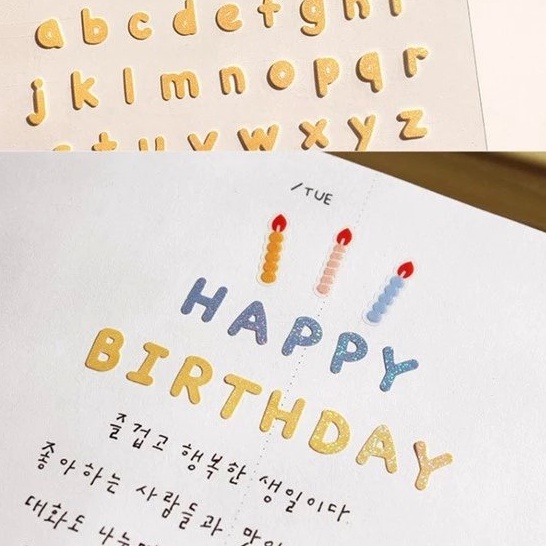 a b c d e f g h i
j k l m n o p q r
s t u v w x y z
/TUE
HAPPY
BIRTHDAY
즐겁고 행복한 생일이다
좋아하는 사람들과
대화도